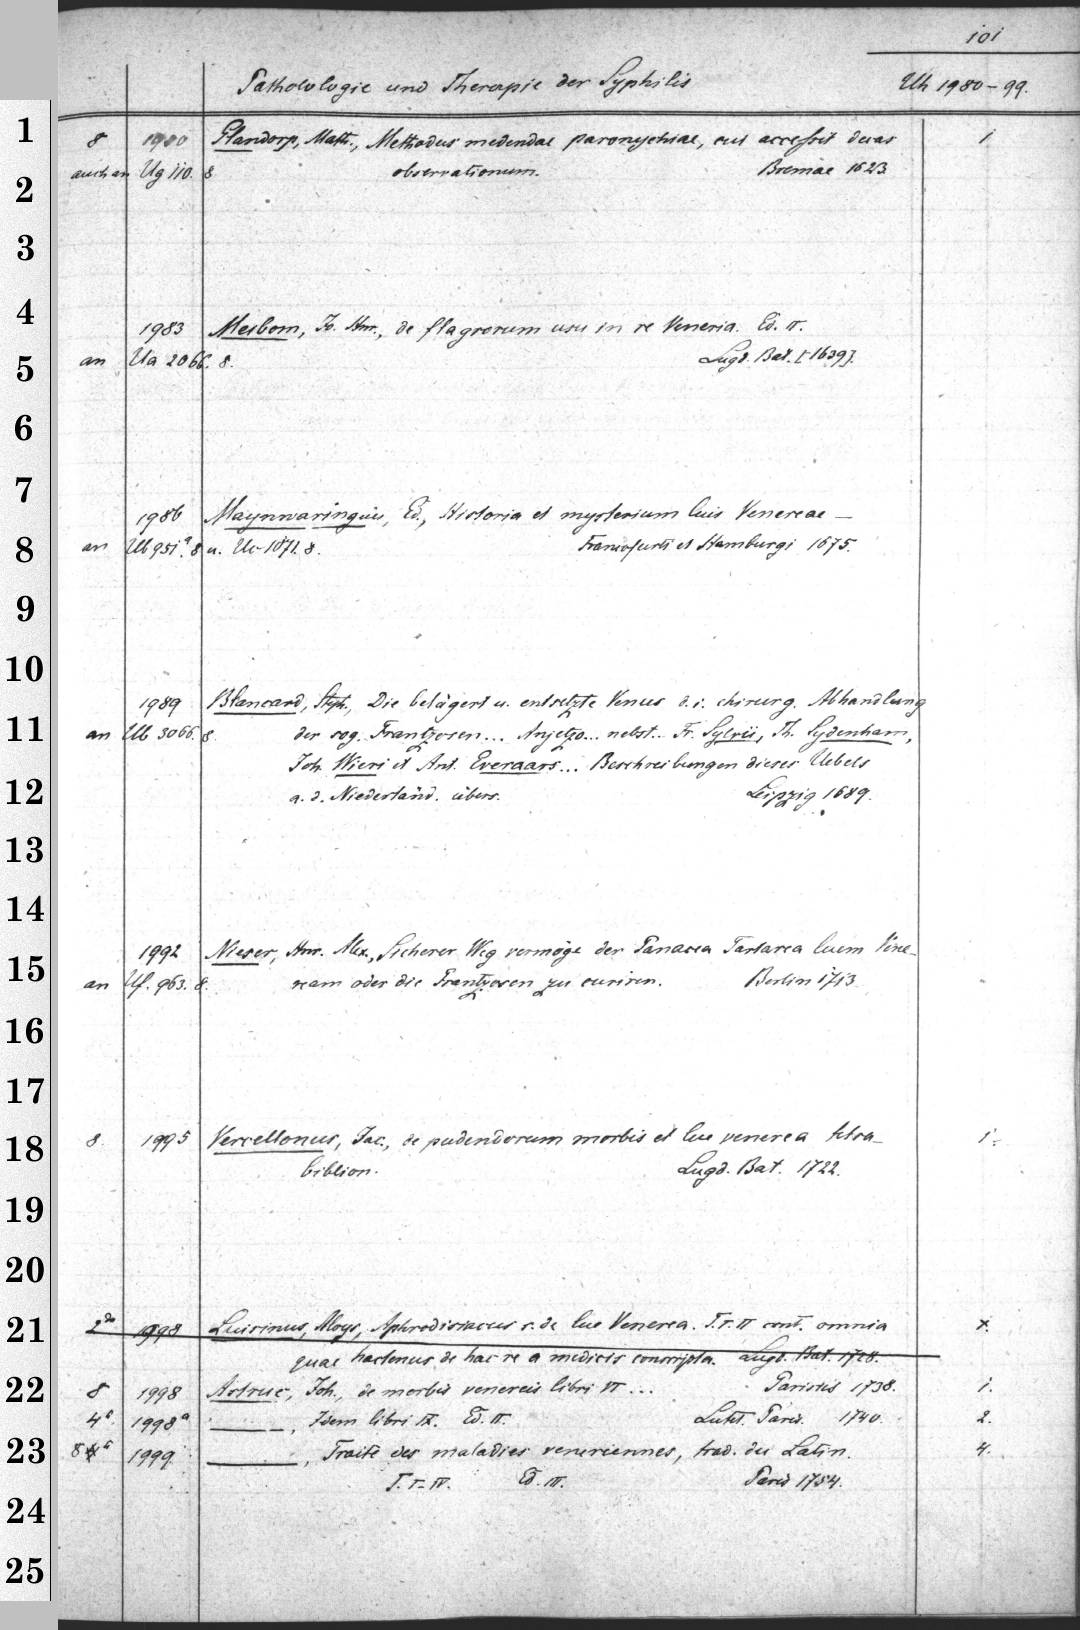 101
Pathologie und Therapie der Syphilis Uh 1980-99.
1
8 1980 Glandorp, Math., Methodus medendae paronychiae, cui accessit decas 1
auch an Ug 110. 8 observationum. Bremae 1623
2
3
4
1983 Meibom, Jo. Hnr., de flagrorum usu in re Veneria. Ed. II.
an Ua 2066. 8. Lugd. Bat. [1639].
5
6
7
1986 Maynwaringius, Ed., Historia et mysterium luis Venereae —
8
an Ub 951a. 8 u. Uc 1071. 8. Francofurti et Hamburgi 1675.
9
10
1989 Blancard, Steph., Die belägert u. entsetzte Venus d. i. chirurg. Abhandlung
11
an Ub 3066. 8. der sog. Frantzosen... Anjetzo... nebst.. Fr. Sylvii, Th. Sydenham,
Joh. Wieri et Ant. Everaars... Beschreibungen dieses Uebels
12
a. d. Niederländ. übers. Leipzig 1689.
13
14
1992 Nieser, Hnr. Alex., Sicherer Weg vermöge der Panacea Tartarea luem Vene-
15
an Uf. 963. 8. ream oder die Frantzosen zu curiren. Berlin 1713.
16
17
18
8. 1995 Vercellonus, Jac., de pudendorum morbis et lue venerea tetra- 1.
biblion. Lugd. Bat. 1722.
19
20
21
2do 1998 Luisinus, Aloys, Aphrodisiacus s. de lue Venerea. T. I. II cont. omnia x.
quae hactenus de hac re a medicis conscripta. Lugd. Bat. 1728.
22
8 1998 Astruc, Joh., de morbis venereis libri VI... Parisiis 1738. 1.
4o. 1998a ———, Idem libri IX. Ed. II. Lutet. Paris. 1740. 2.
23
8 1999 ———, Traité des maladies veneriennes, trad. du Latin. 4.
T. I-IV. Ed. III. Paris 1754.
24
25